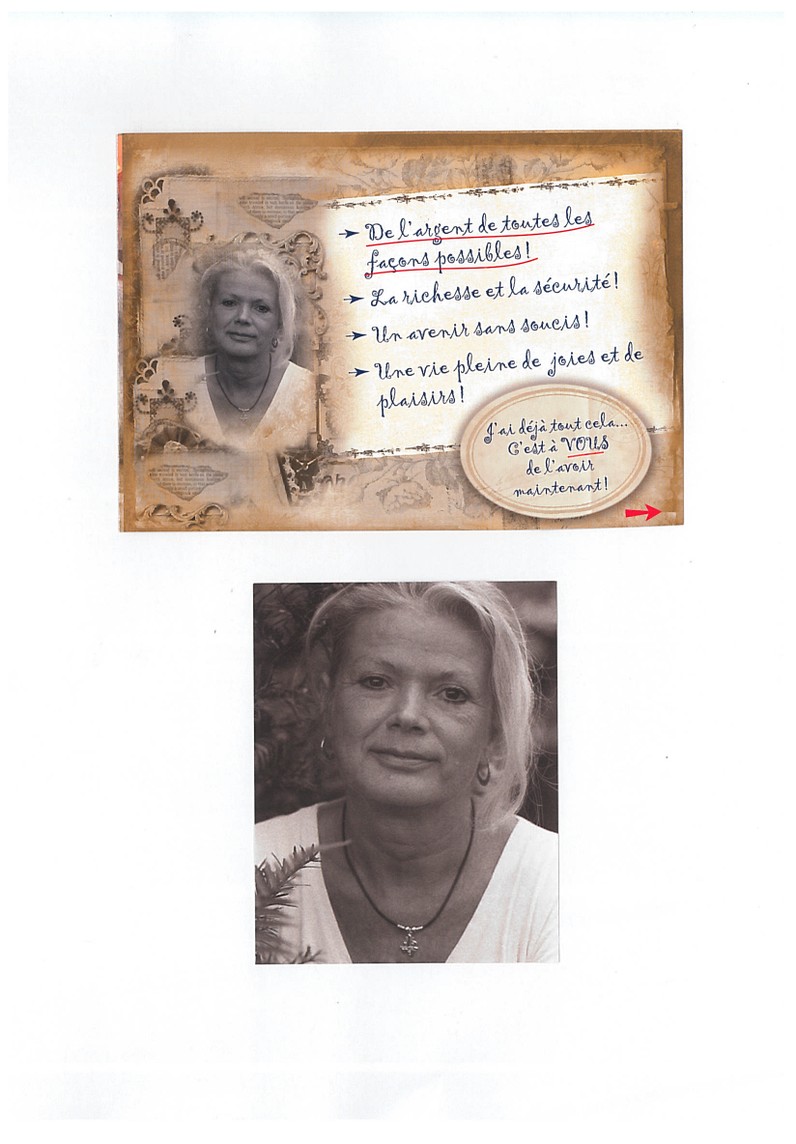 De l'argent de toutes les
façons possibles!
La richesse et la sécurité!
Un avenir sans soucis!
Une vie pleine de joies et de
plaisirs!
J'ai déjà tout cela...
C'est à VOUS
de l'avoir
maintenant!